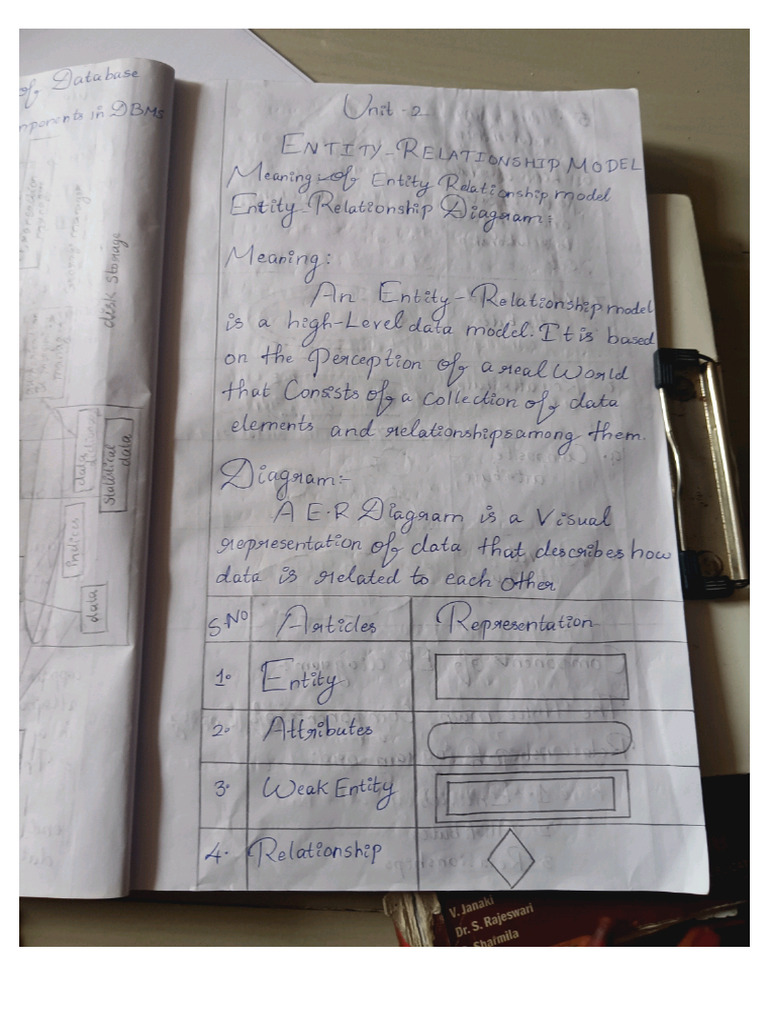 of Database
mponents in DBMS
disk storage
Statistical
data
indices
data
Unit - 2
ENTITY-RELATIONSHIP MODEL
Meaning of Entity Relationship model
Entity Relationship Diagram:
Meaning:
An Entity-Relationship model
is a high-Level data model. It is based
on the Perception of a real World
that Consists of a collection of data
elements and relationships among them.
Diagram:-
A E.R Diagram is a Visual
representation of data that describes how
data is related to each other
S.No Articles Representation
1. Entity
2. Attributes
3. Weak Entity
4. Relationship
V. Janaki
Dr. S. Rajeswari
Sharmila